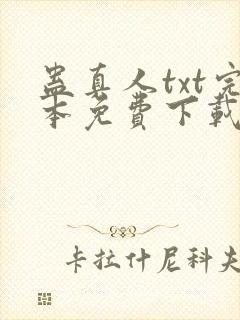 蛊真人txt完
本免費下載
卡拉什尼科夫